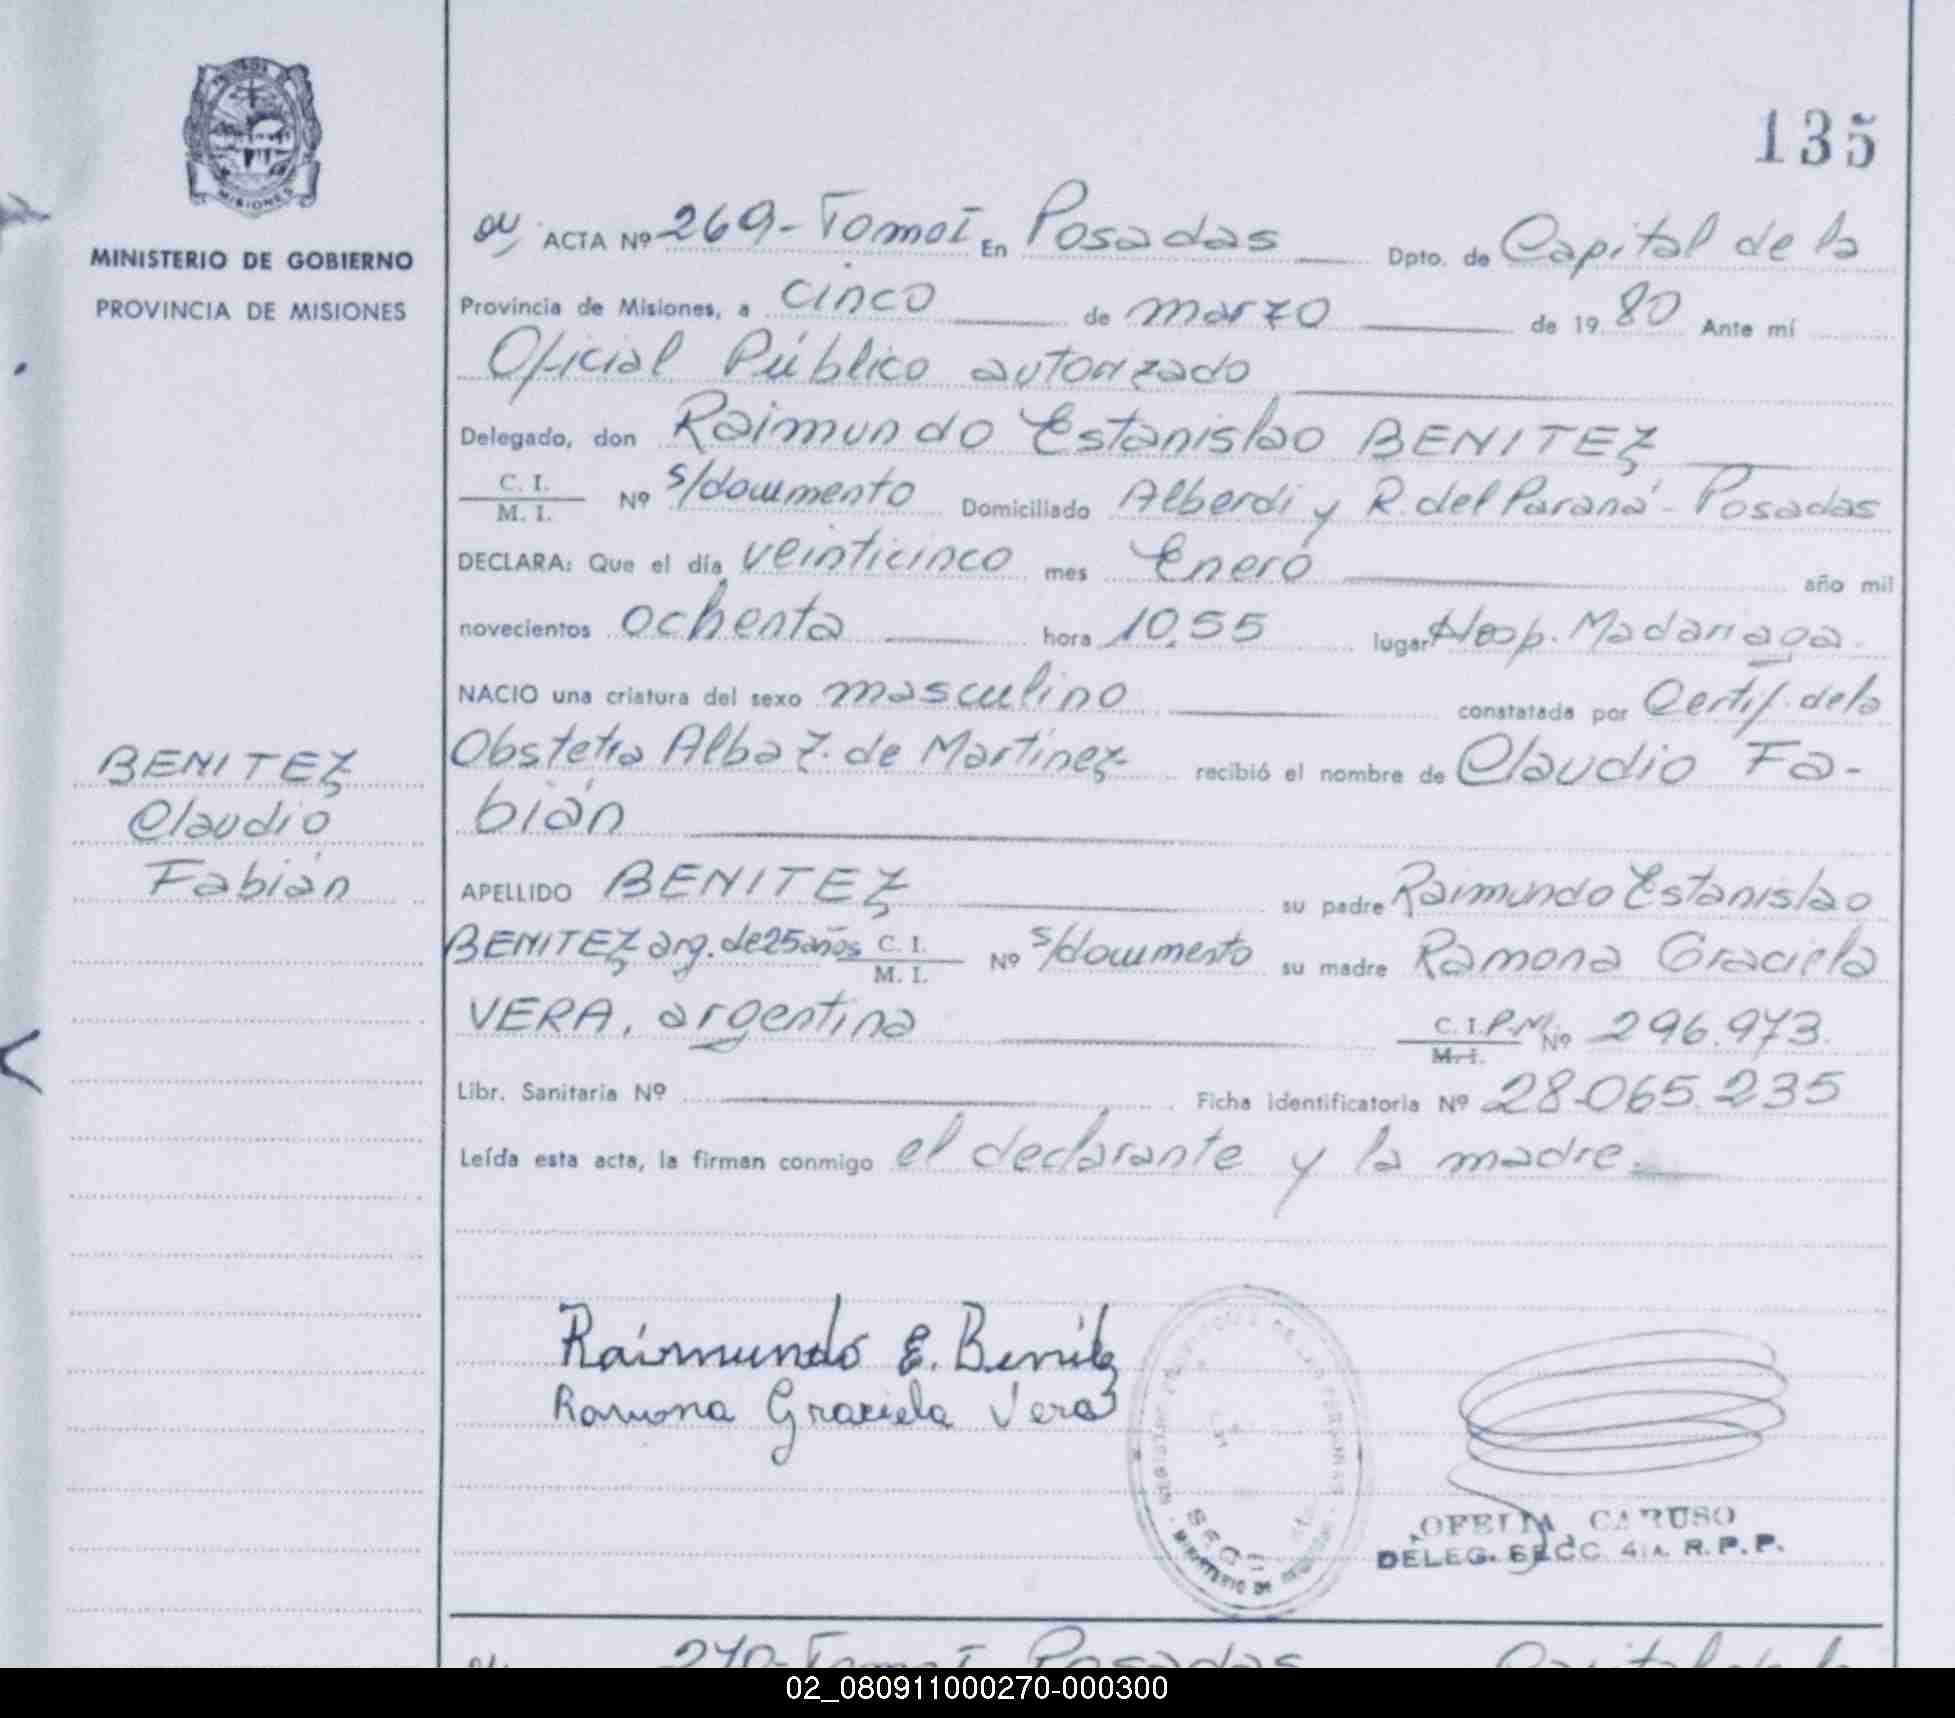 PROVINCIA DE
MISIONES
MINISTERIO DE GOBIERNO
PROVINCIA DE MISIONES
135
ACTA Nº 269 - Tomo I En Posadas Dpto. de Capital de la
Provincia de Misiones, a cinco de marzo de 1980 Ante mí
Oficial Público autorizado
Delegado, don Raimundo Estanislao BENITEZ
C. I.
M. I. Nº s/documento Domiciliado Alberdi y R. del Paraná - Posadas
DECLARA: Que el día veinticinco mes Enero año mil
novecientos ochenta hora 10.55 lugar Hosp. Madariaga.
NACIO una criatura del sexo masculino constatada por Certif. de la
Obstetra Alba Z. de Martínez recibió el nombre de Claudio Fa-
bián
BENITEZ
Claudio
Fabián
APELLIDO BENITEZ su padre Raimundo Estanislao
BENITEZ arg. de 25 años C. I.
M. I. Nº s/documento su madre Ramona Graciela
VERA, argentina C. I. P.M.
M. I. Nº 296.973.
Libr. Sanitaria Nº Ficha identificatoria Nº 28.065.235
Leída esta acta, la firman conmigo el declarante y la madre.
Raimundo E. Benitez
Ramona Graciela Vera
MINISTERIO DE
OFELIA CARUSO
DELEG. SECC. 4ta. R.P.P.
270 - Tomo I Posadas Capital de la
02_080911000270-000300